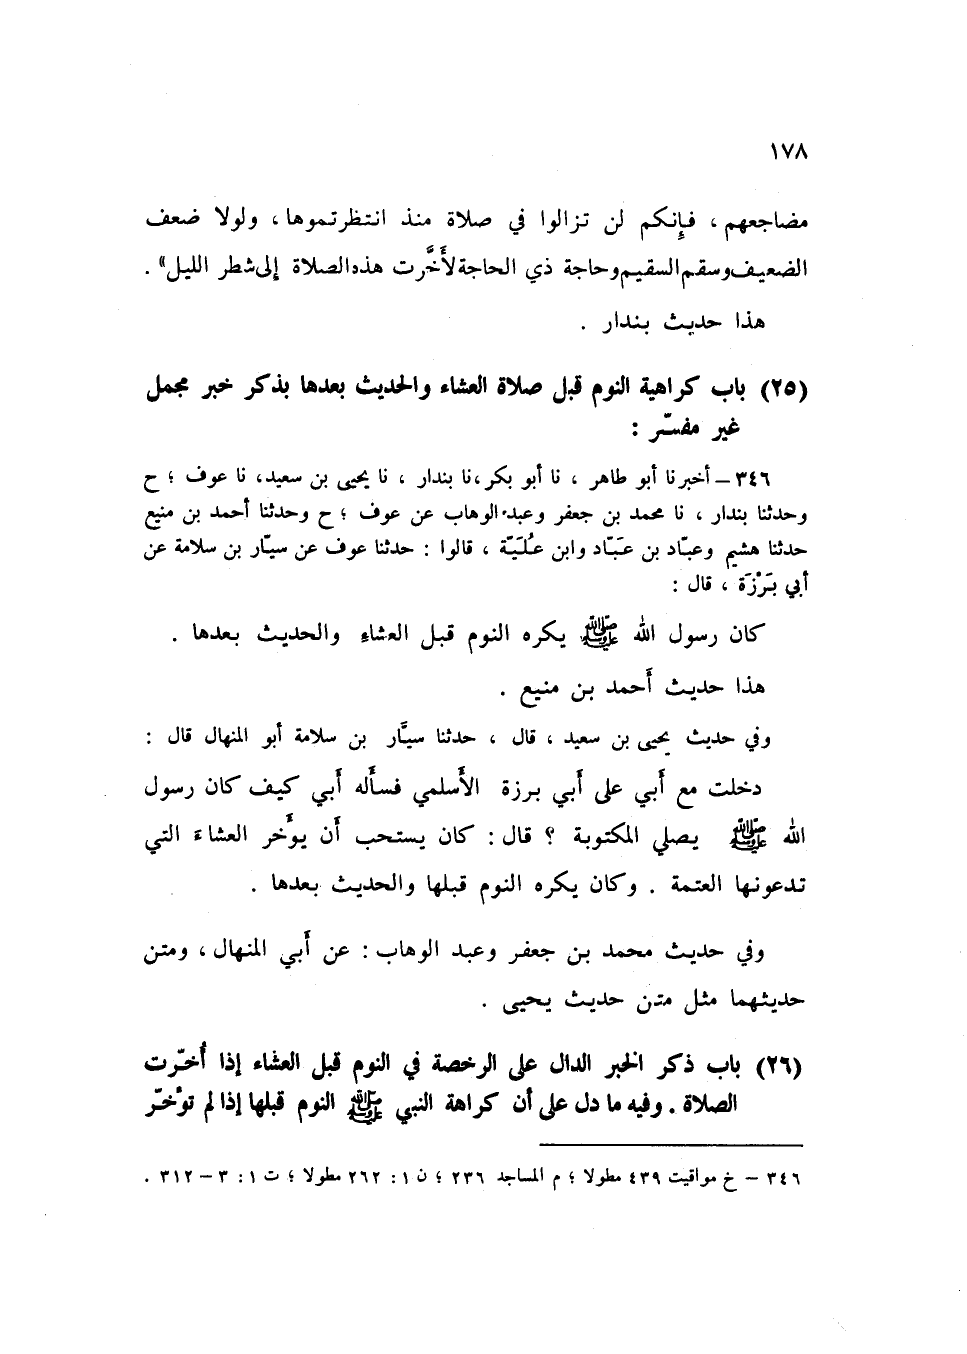 ١٧٨
مضاجعهم ، فإنكم لن تزالوا في صلاة منذ انتظرتموها ، ولولا ضعف
الضعيف وسقم السقيم وحاجة ذي الحاجة لأخَّرت هذه الصلاة إلى شطر الليل» .
هذا حديث بندار .
(٢٥) باب كراهية النوم قبل صلاة العشاء والحديث بعدها بذكر خبر مجمل
غير مفسّر :
٣٤٦ – أخبرنا أبو طاهر ، نا أبو بكر ، نا بندار ، نا يحيى بن سعيد ، نا عوف ؛ ح
وحدثنا بندار ، نا محمد بن جعفر وعبد الوهاب عن عوف ؛ ح وحدثنا أحمد بن منيع
حدثنا هشيم وعبّاد بن عَبّاد وابن عُلَيّة ، قالوا : حدثنا عوف عن سيّار بن سلامة عن
أبي بَرْزَة ، قال :
كان رسول الله ﷺ يكره النوم قبل العشاء والحديث بعدها .
هذا حديث أحمد بن منيع .
وفي حديث يحيى بن سعيد ، قال ، حدثنا سيَّار بن سلامة أبو المنهال قال :
دخلت مع أبي على أبي برزة الأسلمي فسأله أبي كيف كان رسول
الله ﷺ يصلي المكتوبة ؟ قال : كان يستحب أن يؤخر العشاء التي
تدعونها العتمة . وكان يكره النوم قبلها والحديث بعدها .
وفي حديث محمد بن جعفر وعبد الوهاب : عن أبي المنهال ، ومتن
حديثهما مثل متن حديث يحيى .
(٢٦) باب ذكر الخبر الدال على الرخصة في النوم قبل العشاء إذا أُخّرت
الصلاة . وفيه ما دل على أن كراهة النبي ﷺ النوم قبلها إذا لم تؤخّر
٣٤٦ – خ مواقيت ٤٣٩ مطولا ؛ م المساجد ٢٣٦ ؛ ن ١ : ٢٦٢ مطولا ؛ ت ١ : ٣ – ٣١٢ .